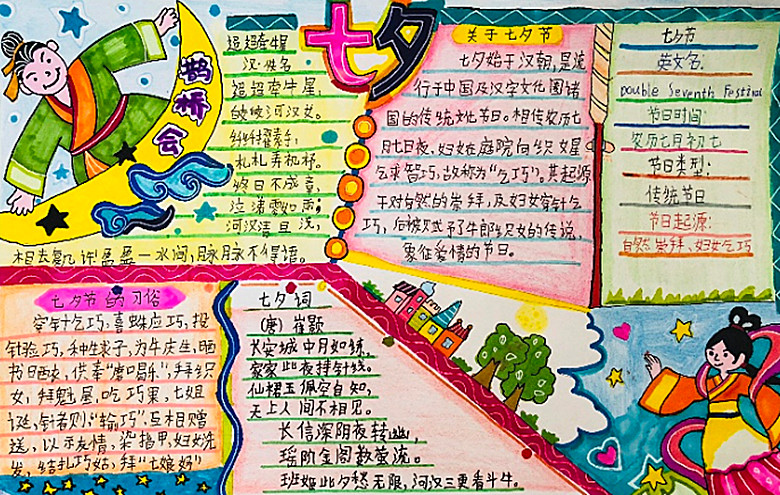 鹊桥会
迢迢牵牛星
汉·佚名
迢迢牵牛星,
皎皎河汉女。
纤纤擢素手,
札札弄机杼。
终日不成章,
泣涕零如雨;
河汉清且浅,
相去复几许盈盈一水间,脉脉不得语。
七夕
关于七夕节
七夕始于汉朝,是流
行于中国及汉字文化圈诸
国的传统文化节日。相传农历七
月七日夜,妇女在庭院向织女星
乞求智巧,故称为“乞巧”。其起源
于对自然的崇拜,及妇女穿针乞
巧,后被赋予了牛郎织女的传说,
象征爱情的节日。
七夕节
英文名:
Double Seventh Festival
节日时间:
农历七月初七
节日类型:
传统节日
节日起源:
自然崇拜、妇女乞巧
七夕节的习俗
穿针乞巧,喜蛛应巧,投
针验巧,种生求子,为牛庆生,晒
书日晒衣,供奉“磨喝乐”,拜织
女,拜魁星,吃巧果,七姐
诞,针者则“输巧”,互相赠
送,以示友情,染指甲,妇女洗
发,结扎巧姑,拜“七娘妈”
七夕词
(唐)崔颢
长安城中月如练,
家家此夜持针线。
仙裙玉佩空自知,
天上人间不相见。
长信深阴夜转幽,
瑶阶金阁数萤流。
班姬此夕愁无限,河汉三更看斗牛。